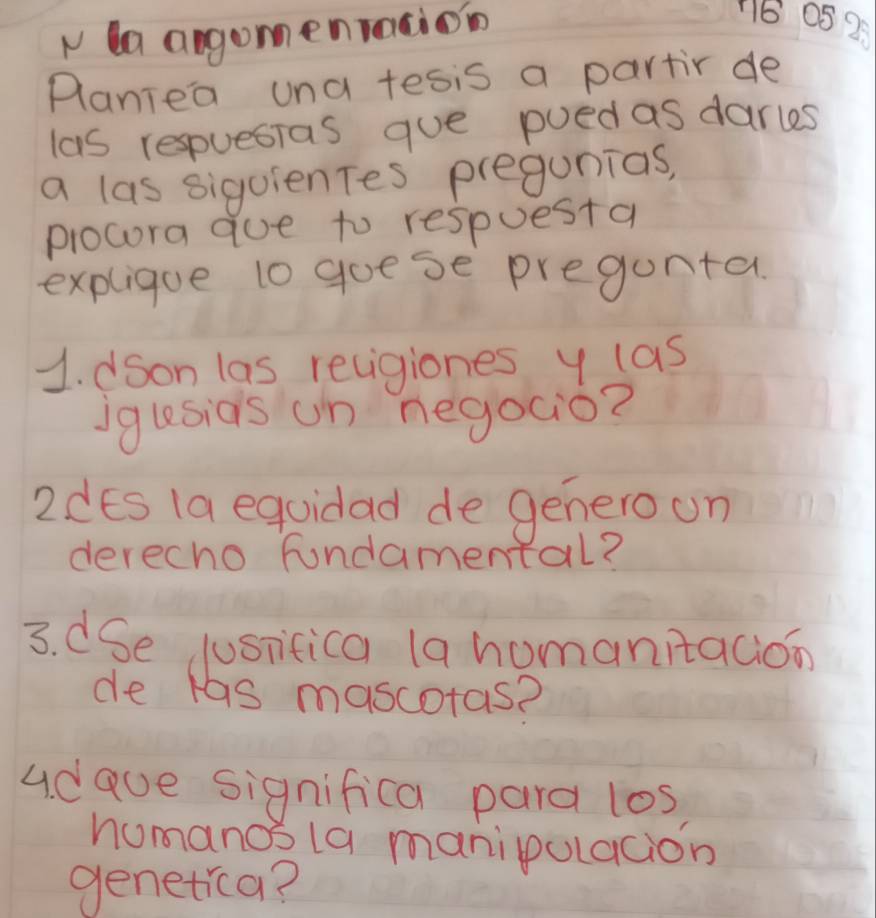 la argumentación 16 05 25
Plantea una tesis a partir de
las respuestas que puedas darles
a las siguientes preguntas,
procura que tu respuesta
explique lo que se pregunta.
1. ¿Son las religiones y las
iglesias un negocio?
2 ¿Es la equidad de género un
derecho fundamental?
3. ¿Se justifica la homanitación
de las mascotas?
4. ¿que significa para los
humanos la manipulación
genetica?